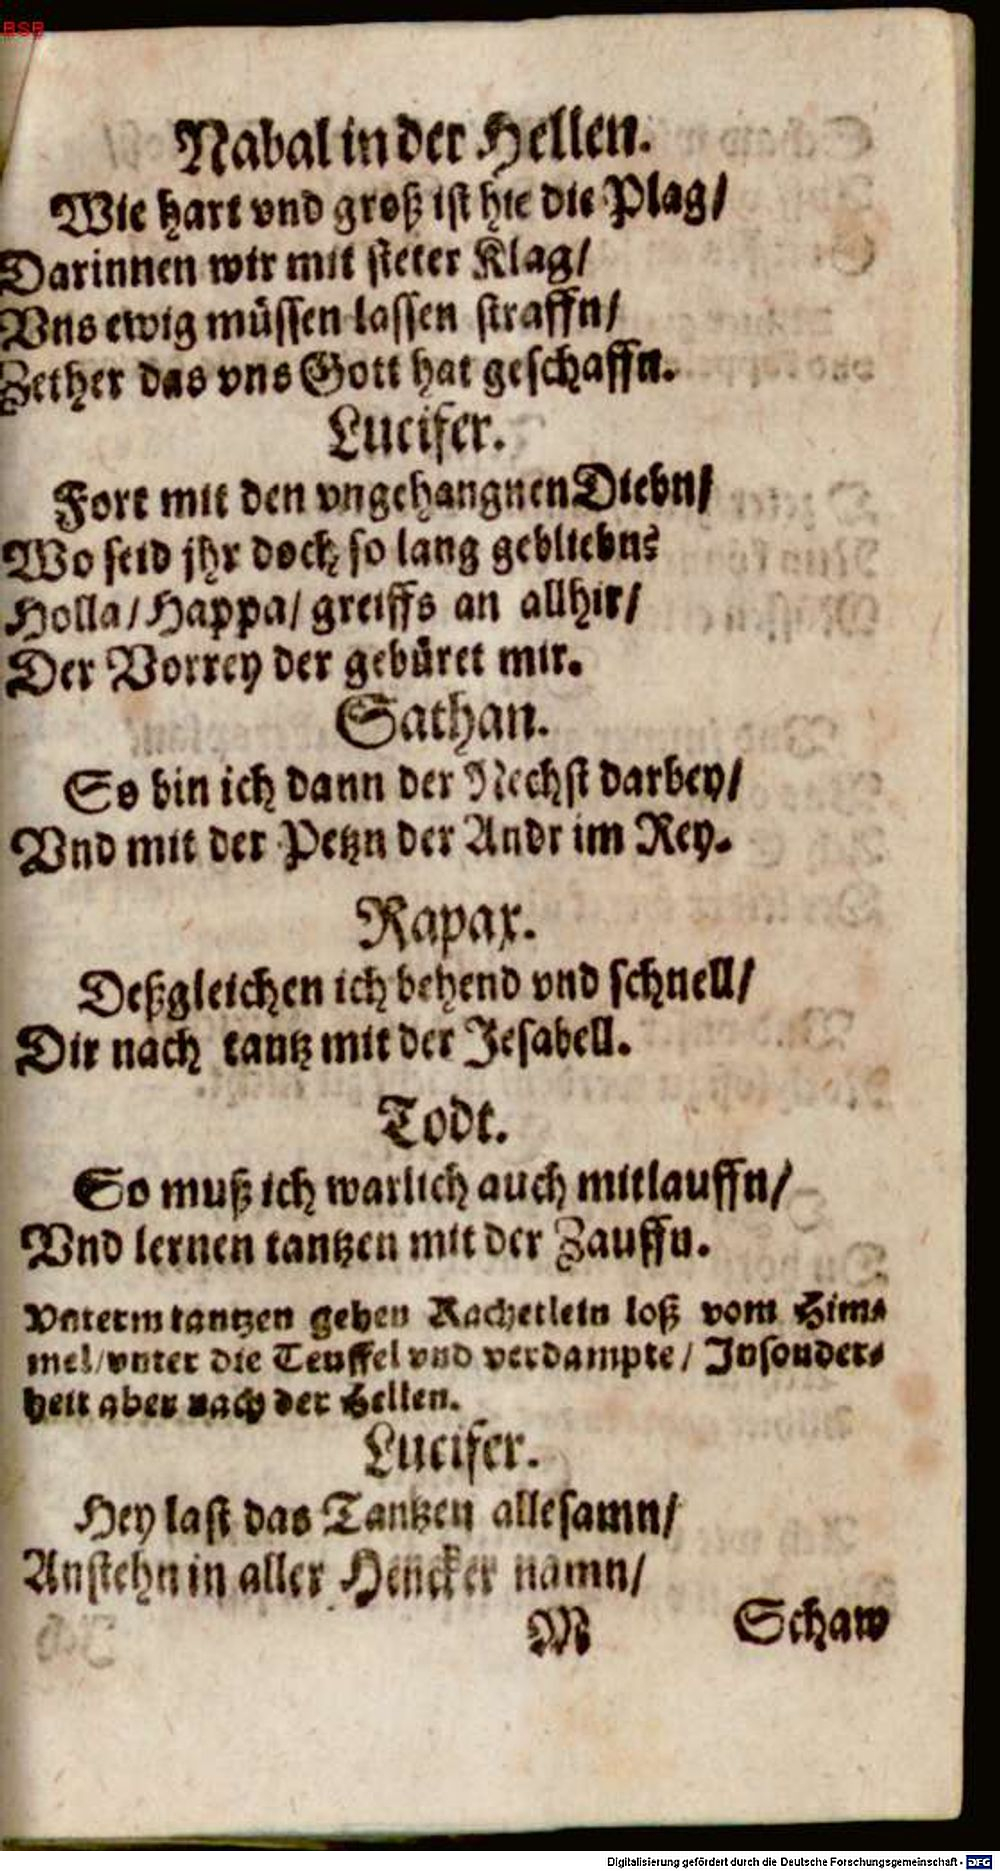 BSB
Nabal in der Hellen.
Wie hart vnd groß ist hie die Plag/
Darinnen wir mit steter Klag/
Vns ewig müssen lassen straffn/
Zether das vns Gott hat geschaffn.
Lucifer.
Fort mit den vngehangnen Diebn/
Wo seid jhr doch so lang gebliebn?
Holla/ Happa/ greiffs an allhir/
Der Vorrey der gebüret mir.
Sathan.
So bin ich dann der Nechst darbey/
Vnd mit der Petzn der Andr im Rey.
Rapax.
Deßgleichen ich behend vnd schnell/
Dir nach tantz mit der Jesabell.
Todt.
So muß ich warlich auch mitlauffn/
Vnd lernen tantzen mit der Zauffn.
Vnterm tantzen gehen Rachetlein loß vom Him⸗
mel/ vnter die Teuffel vnd verdampte/ Jnsonder⸗
heit aber nach der Hellen.
Lucifer.
Hey last das Tantzen allesamn/
Anstehn in aller Hencker namn/
M Schaw
Digitalisierung gefördert durch die Deutsche Forschungsgemeinschaft - DFG